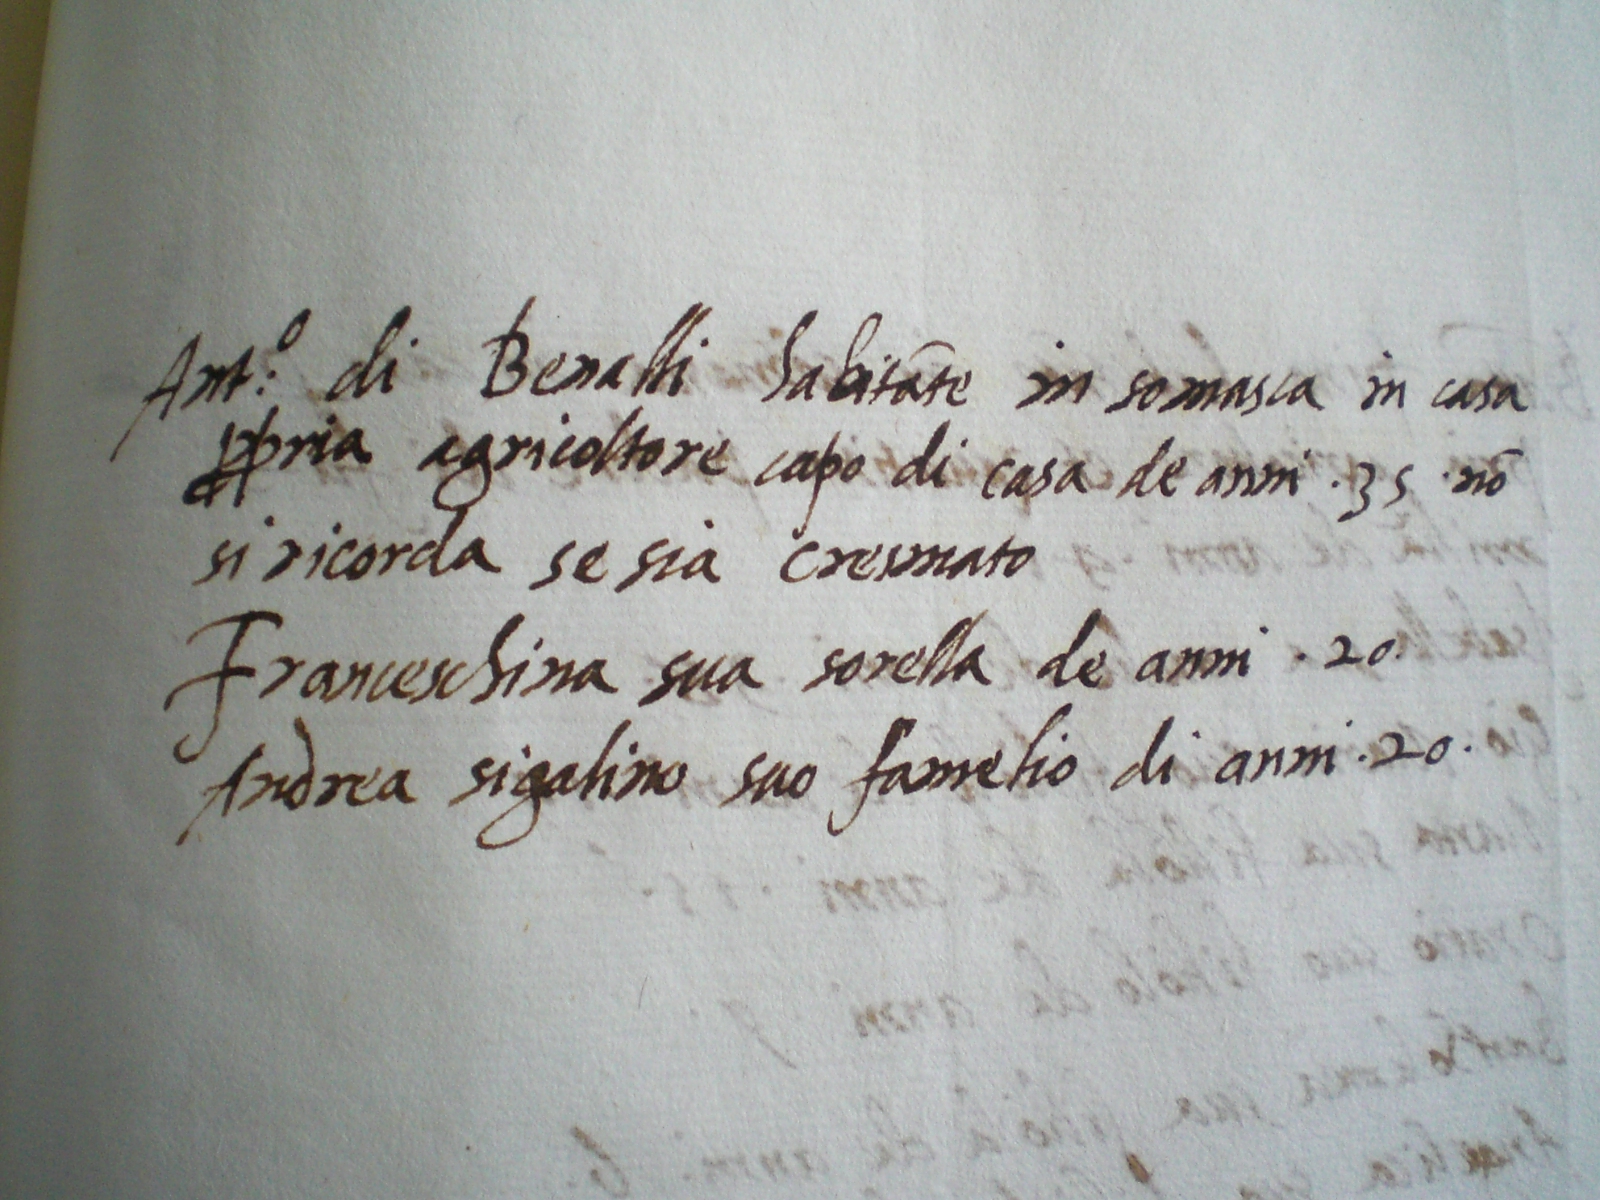 Ant:º di Benalli habitāte in somasca in casa
ppria agricoltore capo di casa de anni .35. nō
si ricorda se sia cresmato
Franceschina sua sorella de anni .20.
Andrea sigalino suo famelio di anni .20.